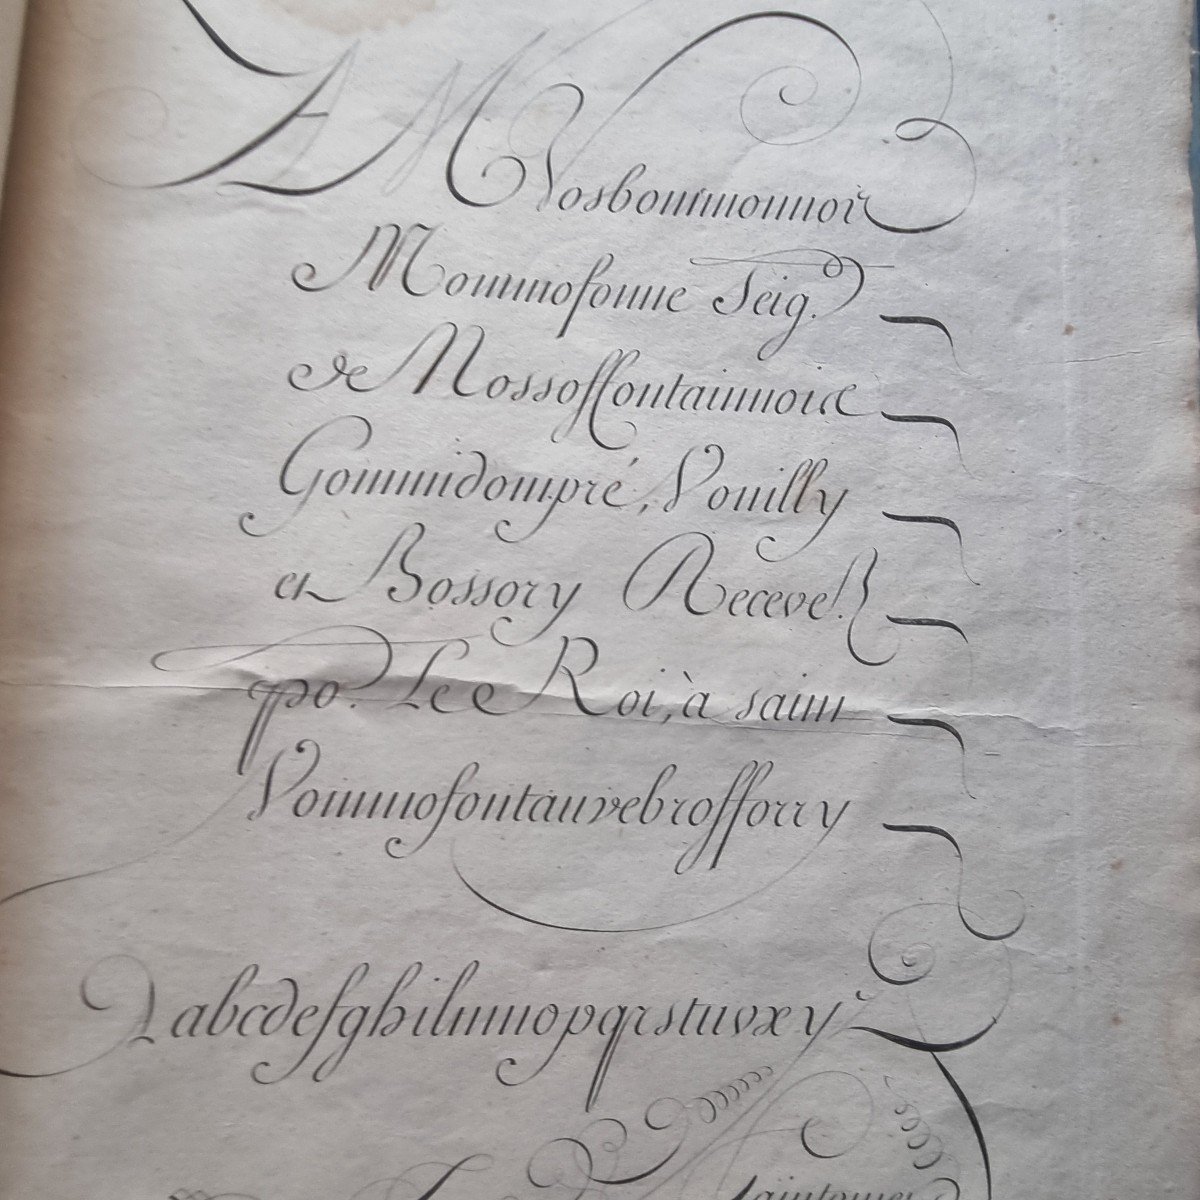 A M Vosbourmonnoir
Mommofonne Seig.r
de Mossoffontainnoire
Gommidompré, Vouilly
et Bossory Receve.r
po.r Le Roi, à saint
Vommofontauvebrofforry
abcdefghilmnopqrstuvxy